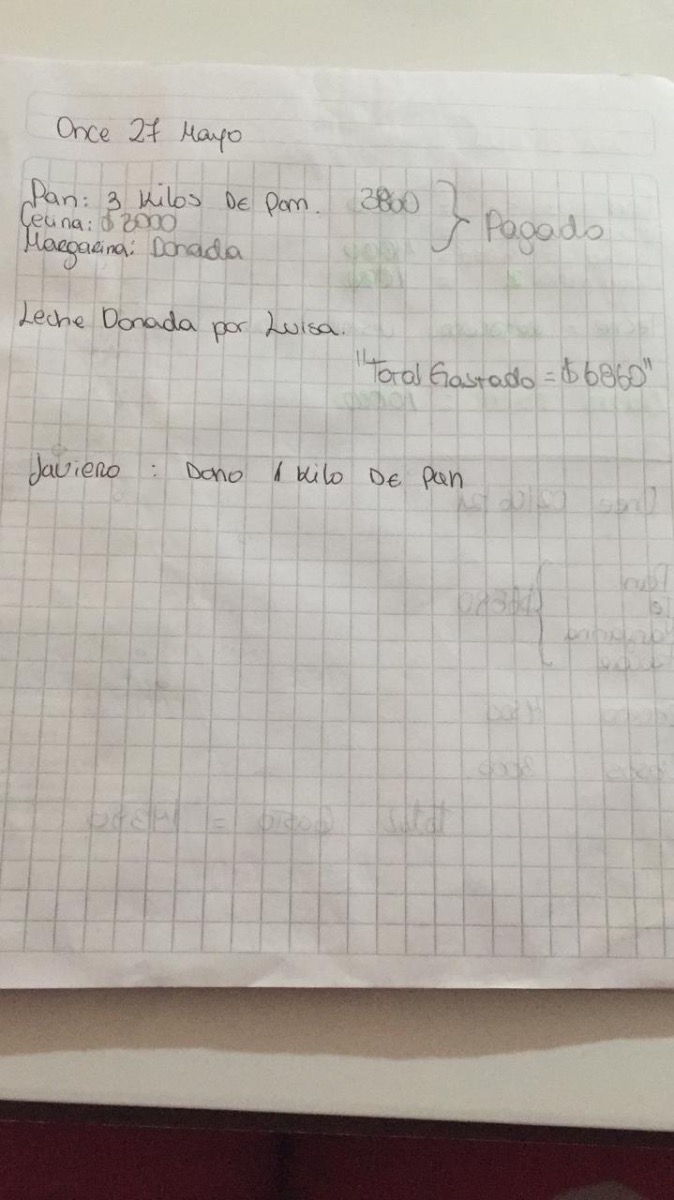 Once 27 Mayo
Pan: 3 Kilos De Pan. 3860 } Pagado
Cecina: $3000
Margarina: Donada
Leche Donada por Luisa.
"Total Gastado = $6860"
Javiera : Dono 1 Kilo De Pan